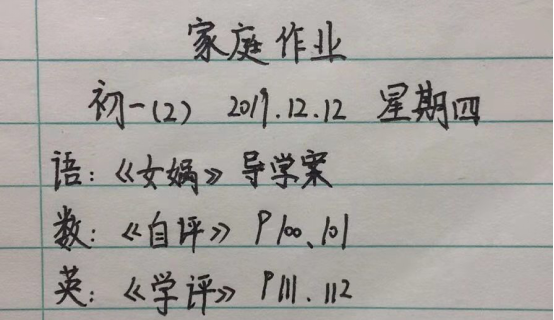 家庭作业
初一(2) 2019.12.12 星期四
语:《女娲》导学案
数:《自评》P100、101
英:《学评》P111.112